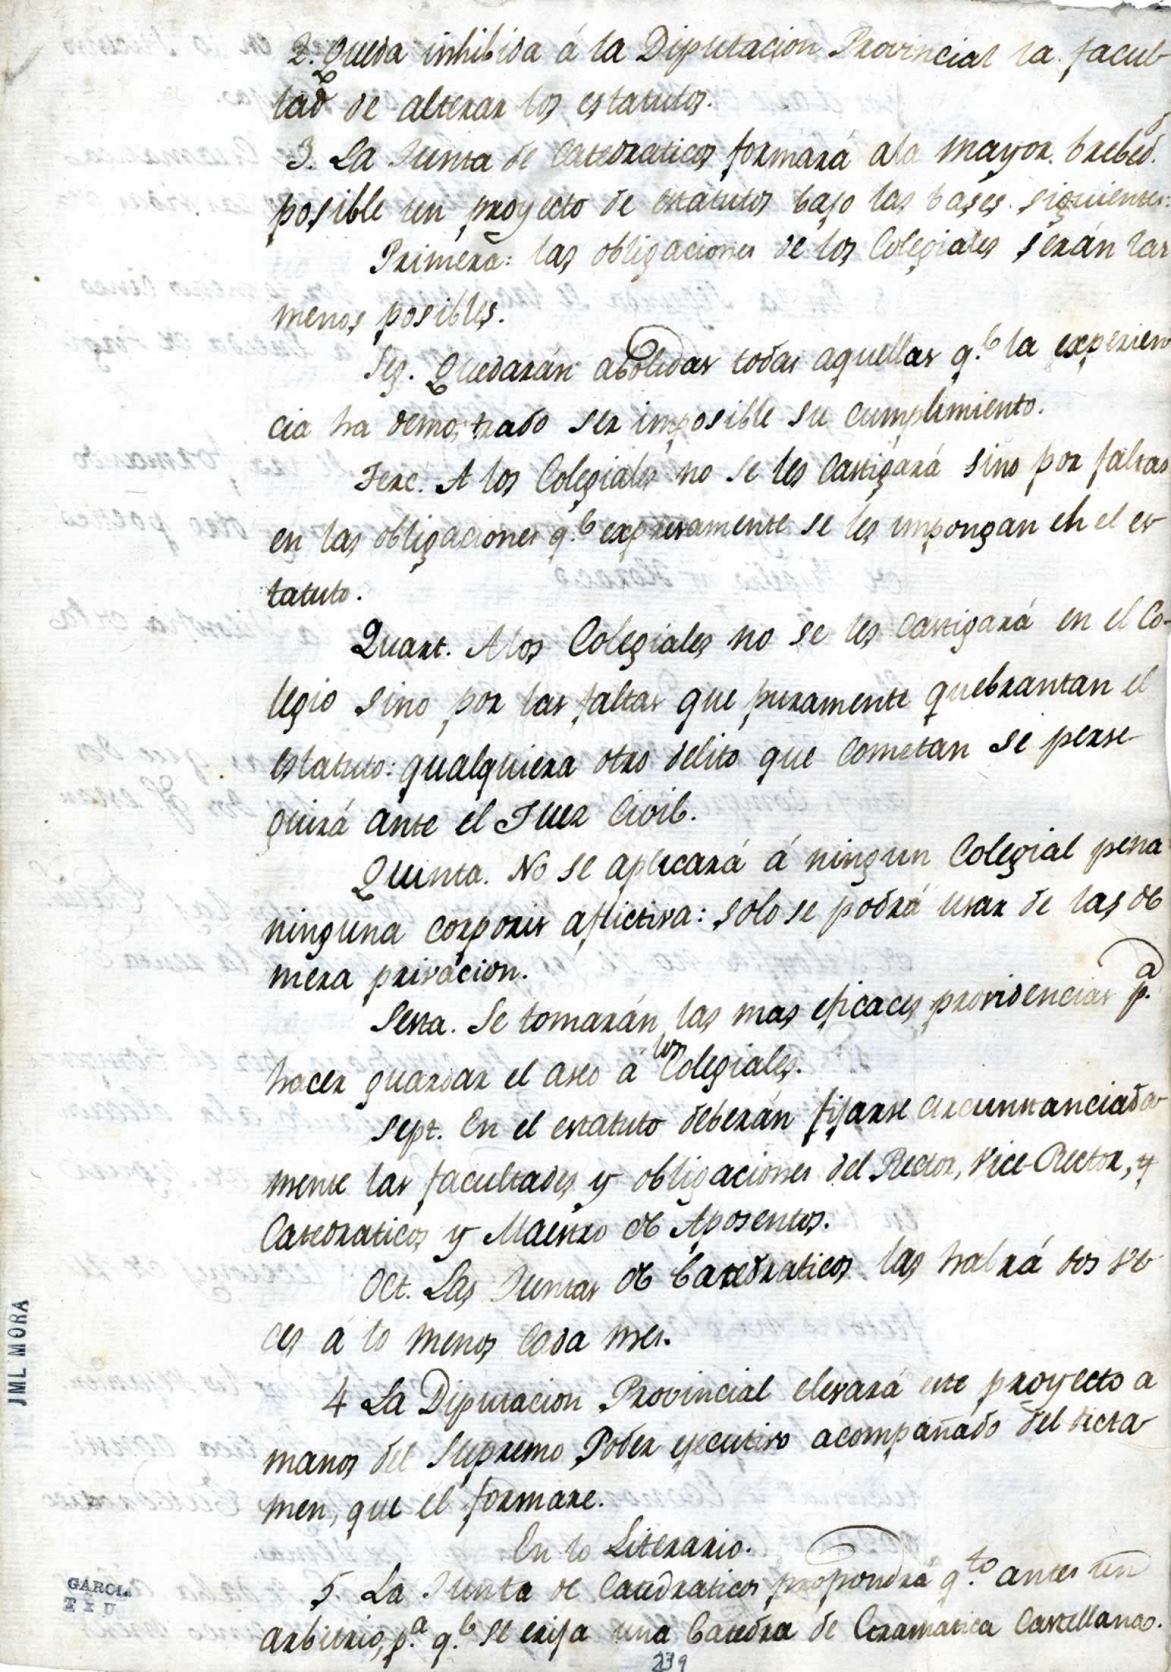 2. Queda inhibida á la Diputacion Provincial la facul
tad de alterar los estatutos.
3. La Junta de Catedraticos formará a la mayor brebed.d
posible un proyecto de estatutos bajo las bases siguientes:
Primera: las obligaciones de los Colegiales serán las
menos posibles.
Seg. Quedarán abolidas todas aquellas q.e la experien
cia ha demostrado ser imposible su cumplimiento.
Terc. A los Colegiales no se les castigará sino por faltas
en las obligaciones q.e expresamente se les impongan en el es
tatuto.
Quart. A los Colegiales no se les castigará en el Co-
legio sino por las faltas que puramente quebrantan el
estatuto: qualquiera otro delito que cometan se perse
guirá ante el Juez Civil.
Quinta. No se aplicará á ningun Colegial pena
ninguna corporis aflictiva: solo se podrá usar de las de
mera privacion.
Sesta. Se tomarán las mas eficaces providencias p.a
hacer guardar el aseo á los Colegiales.
Sept. En el estatuto deberán fijarse circunstanciada
mente las facultades y obligaciones del Rector, Vice-Rector, y
Catedraticos y Maestro de Aposentos.
Oct. Las Juntas de Catedraticos las habrá dos ve
ces á lo menos cada mes.
4 La Diputacion Provincial elevará este proyecto a
manos del Supremo Poder ejecutivo acompañado del dicta
men, que el formare.
En lo Literario.
5 La Junta de Catedraticos propondrá q.to antes un
arbitrio, p.a q.e se erija una Catedra de Gramatica Castellana.
239
JML MORA
GARCIA